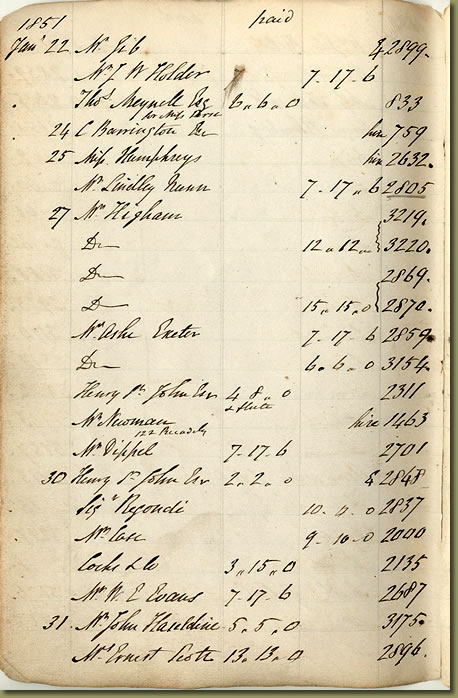 1851 paid
Jany 22 Mr Gib & 2899.
Mr J W Holder 7-17-6
Thos Meynell Esq 6. 6. 0 833
for Miss
24 C Barrington Do hire 759
25 Miss Humphreys hire 2632.
Mr Lindley Nunn 7-17.. 6 2805
27 Mr Higham 3219.
Do 12.. 12.. 3220.
Do 2869.
Do 15.. 15.. 0 2870.
Mr Ashe Exeter 7-17 6 2859.
Do 6.. 6.. 0 3154.
Henry St John Esq 4 8.. 0 2311
& flute
Mr Newman hire 1463
122 Piccadily
Mr Dippel 7-17-6 2701
30 Henry St John Esq 2.. 2.. 0 & 2848
Sigr Regondi 10.. 0.. 0 2837
Mr Case 9.. 10-0 2000
Cocks & Co 3.. 15.. 0 2135
Mr W. E Evans 7-17-6 2687
31. Mr John Haseldine 5.. 5.. 0 3175.
Mr Ernest Scott 13.. 13.. 0 2896.